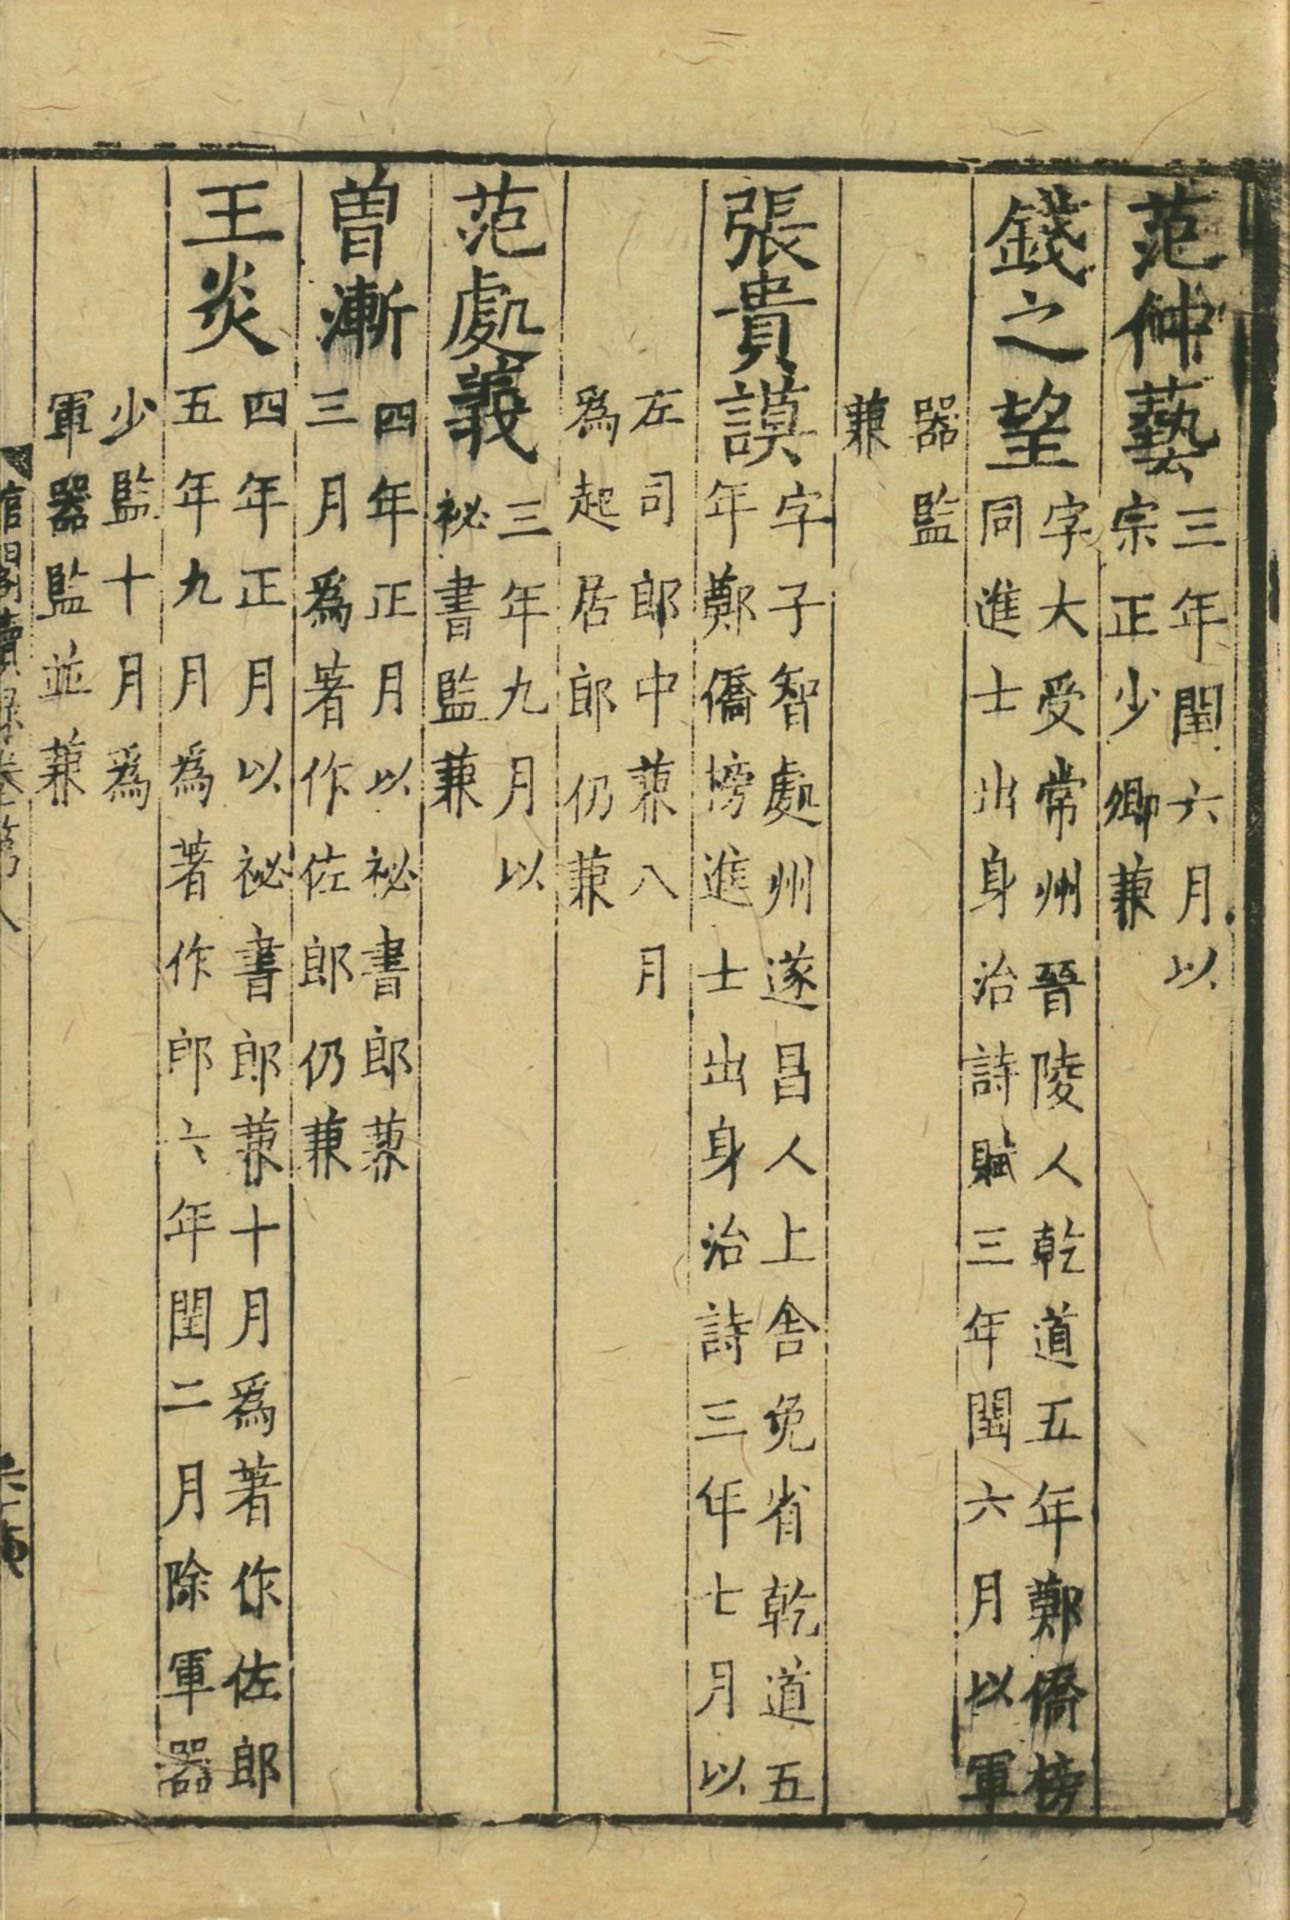 范仲藝三年閏六月以
宗正少卿兼
錢之望字大受常州晉陵人乾道五年鄭僑榜
同進士出身治詩賦三年閏六月以軍
器監
兼
張貴謨字子智處州遂昌人上舍免省乾道五
年鄭僑榜進士出身治詩三年七月以
左司郎中兼八月
為起居郎仍兼
范處義三年九月以
祕書監兼
曾漸四年正月以祕書郎兼
三月為著作佐郎仍兼
王炎四年正月以祕書郎兼十月為著作佐郎
五年九月為著作郎六年閏二月除軍器
少監十月為
軍器監並兼
館閣續錄卷第八